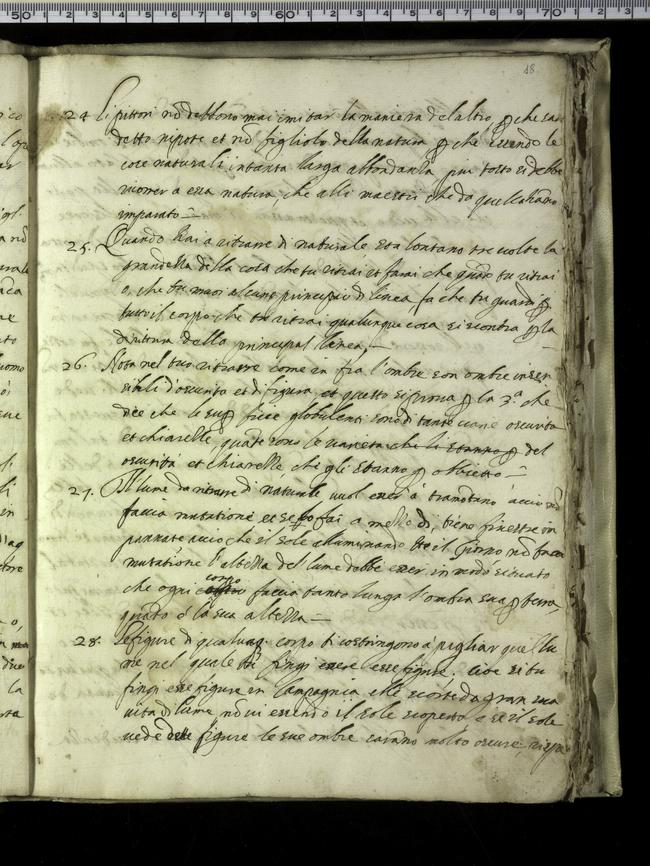 18
24 Li pittori nõ debbono mai imitar la maniera del altro, ꝑ che sar
detto nipote et nõ figliolo della natura ꝑ che essendo le
cose naturali in tanta larga abbondanza, piu tosto si debbe
ricorrer a essa natura, che alli maestri che da quella hano
imparato
25. Quando hai a ritrarre di naturale sta lontano tre volte la
grandezza della cosa che tu ritrai et farai che quãdo tu ritrai
o, che tu muovi alcuno principio di linea, fa che tu guardi ꝑ
tutto il corpo che tu ritrai qualunque cosa si scontra ꝑ la
dirittura della principal linea
26. Nota nel tuo ritrarre come in fra l'ombre son ombre insen
sibili d'oscurita et di figura, et questo si prova ꝑ la 3.ª che
dice che le suꝑficie globulenti sono di tante varie oscurita
et chiarezze quãte sono le varieta che li stanno ꝑ del
oscurità et chiarezze che gli stanno ꝑ obbietto
27. Il lume da ritrarre di naturale vuol esser à tramõtano, acciò nõ
faccia mutatione et se lo fai a mezzo dì, tiene finestre in
pannate acciò che il sole alluminando tt.o il giorno nõ facci
mutatione l'altezza del lume debbe esser in modo situato
corpo
che ogni faccia tanto lunga l'ombra sua ꝑ terra,
quãto è la sua altezza
28. Le figure di qualunq; corpo ti costringono à pigliar quel lu
me nel quale tu fingi essere esse figure. cioe se tu
fingi esse figure in Campagnia elle son cinte da gran suã
vita di lume, nõ vi essendo il sole scoperto, e se il sole
vede dette figure le sue ombre saranno molto oscure, rispe